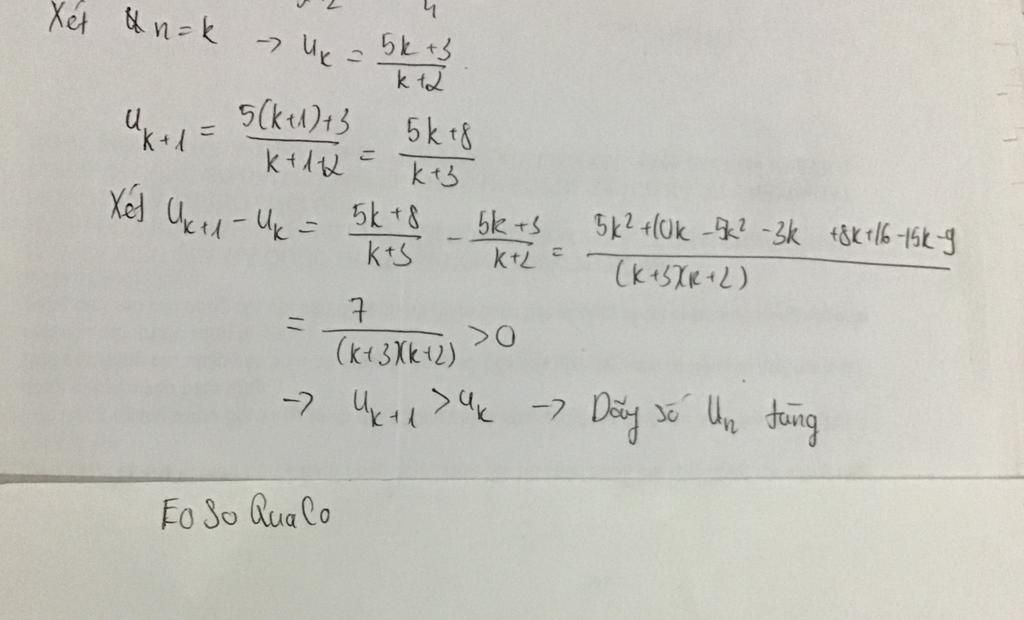 Xét n=k → u_k = (5k+3)/(k+2)
u_{k+1} = (5(k+1)+3)/(k+1+2) = (5k+8)/(k+3)
Xét u_{k+1} - u_k = (5k+8)/(k+3) - (5k+3)/(k+2) = (5k²+10k-5k²-3k +8k+16-15k-9)/((k+3)(k+2))
= 7/((k+3)(k+2)) >0
→ u_{k+1} > u_k → Dãy số u_n tăng
EoSoQuaCo